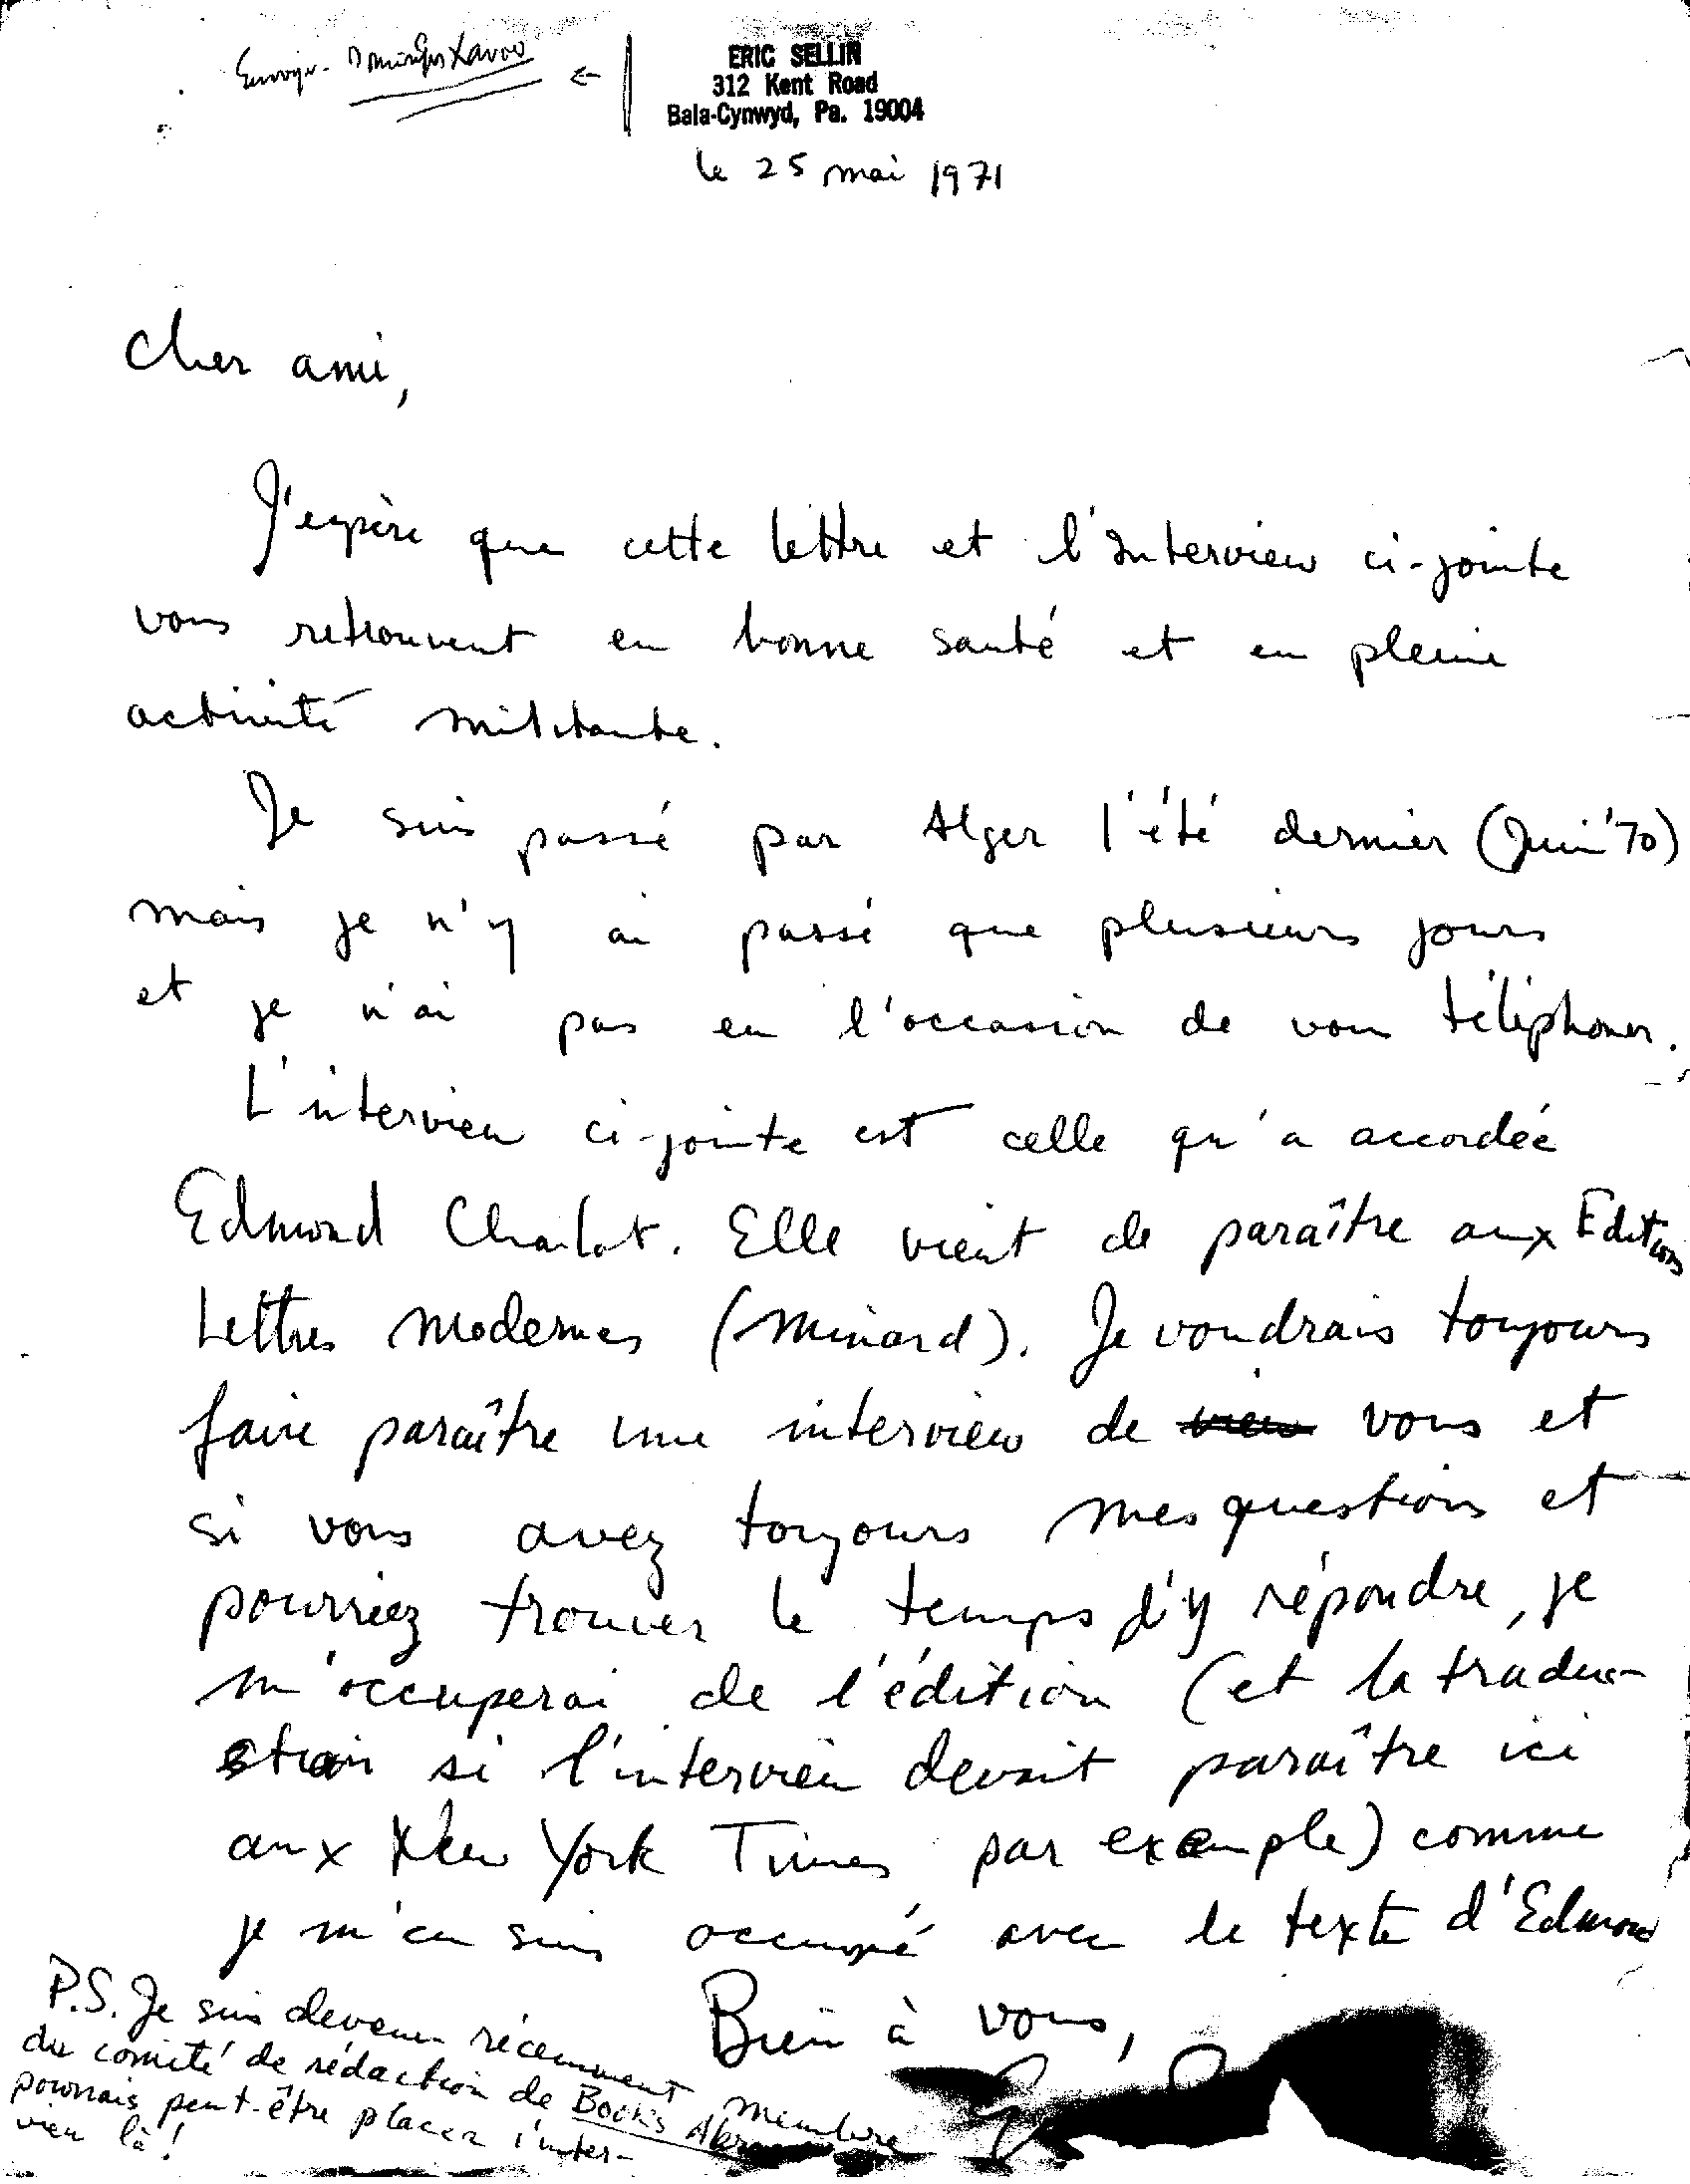 ERIC SELLIN
312 Kent Road
Bala-Cynwyd, Pa. 19004
le 25 mai 1971
Cher ami,
J'espère que cette lettre et l'interview ci-jointe
vous retrouvent en bonne santé et en pleine
activité militante.
Je suis passé par Alger l'été dernier (Juin '70)
mais je n'y ai passé que plusieurs jours
et je n'ai pas eu l'occasion de vous téléphoner.
L'interview ci-jointe est celle qu'a accordée
Edmond Charlot. Elle vient de paraître aux Editions
Lettres Modernes (Minard). Je voudrais toujours
faire paraître une interview de vous et
si vous avez toujours mes questions et
pourriez trouver le temps d'y répondre, je
m'occuperai de l'édition (et la traduc-
tion si l'interview devait paraître ici
aux New York Times par exemple) comme
je m'en suis occupé avec le texte d'Edmond
Bien à vous,
P.S. Je suis devenu récemment membre
du comité de rédaction de Books
pourrais peut-être placer l'inter-
view là!